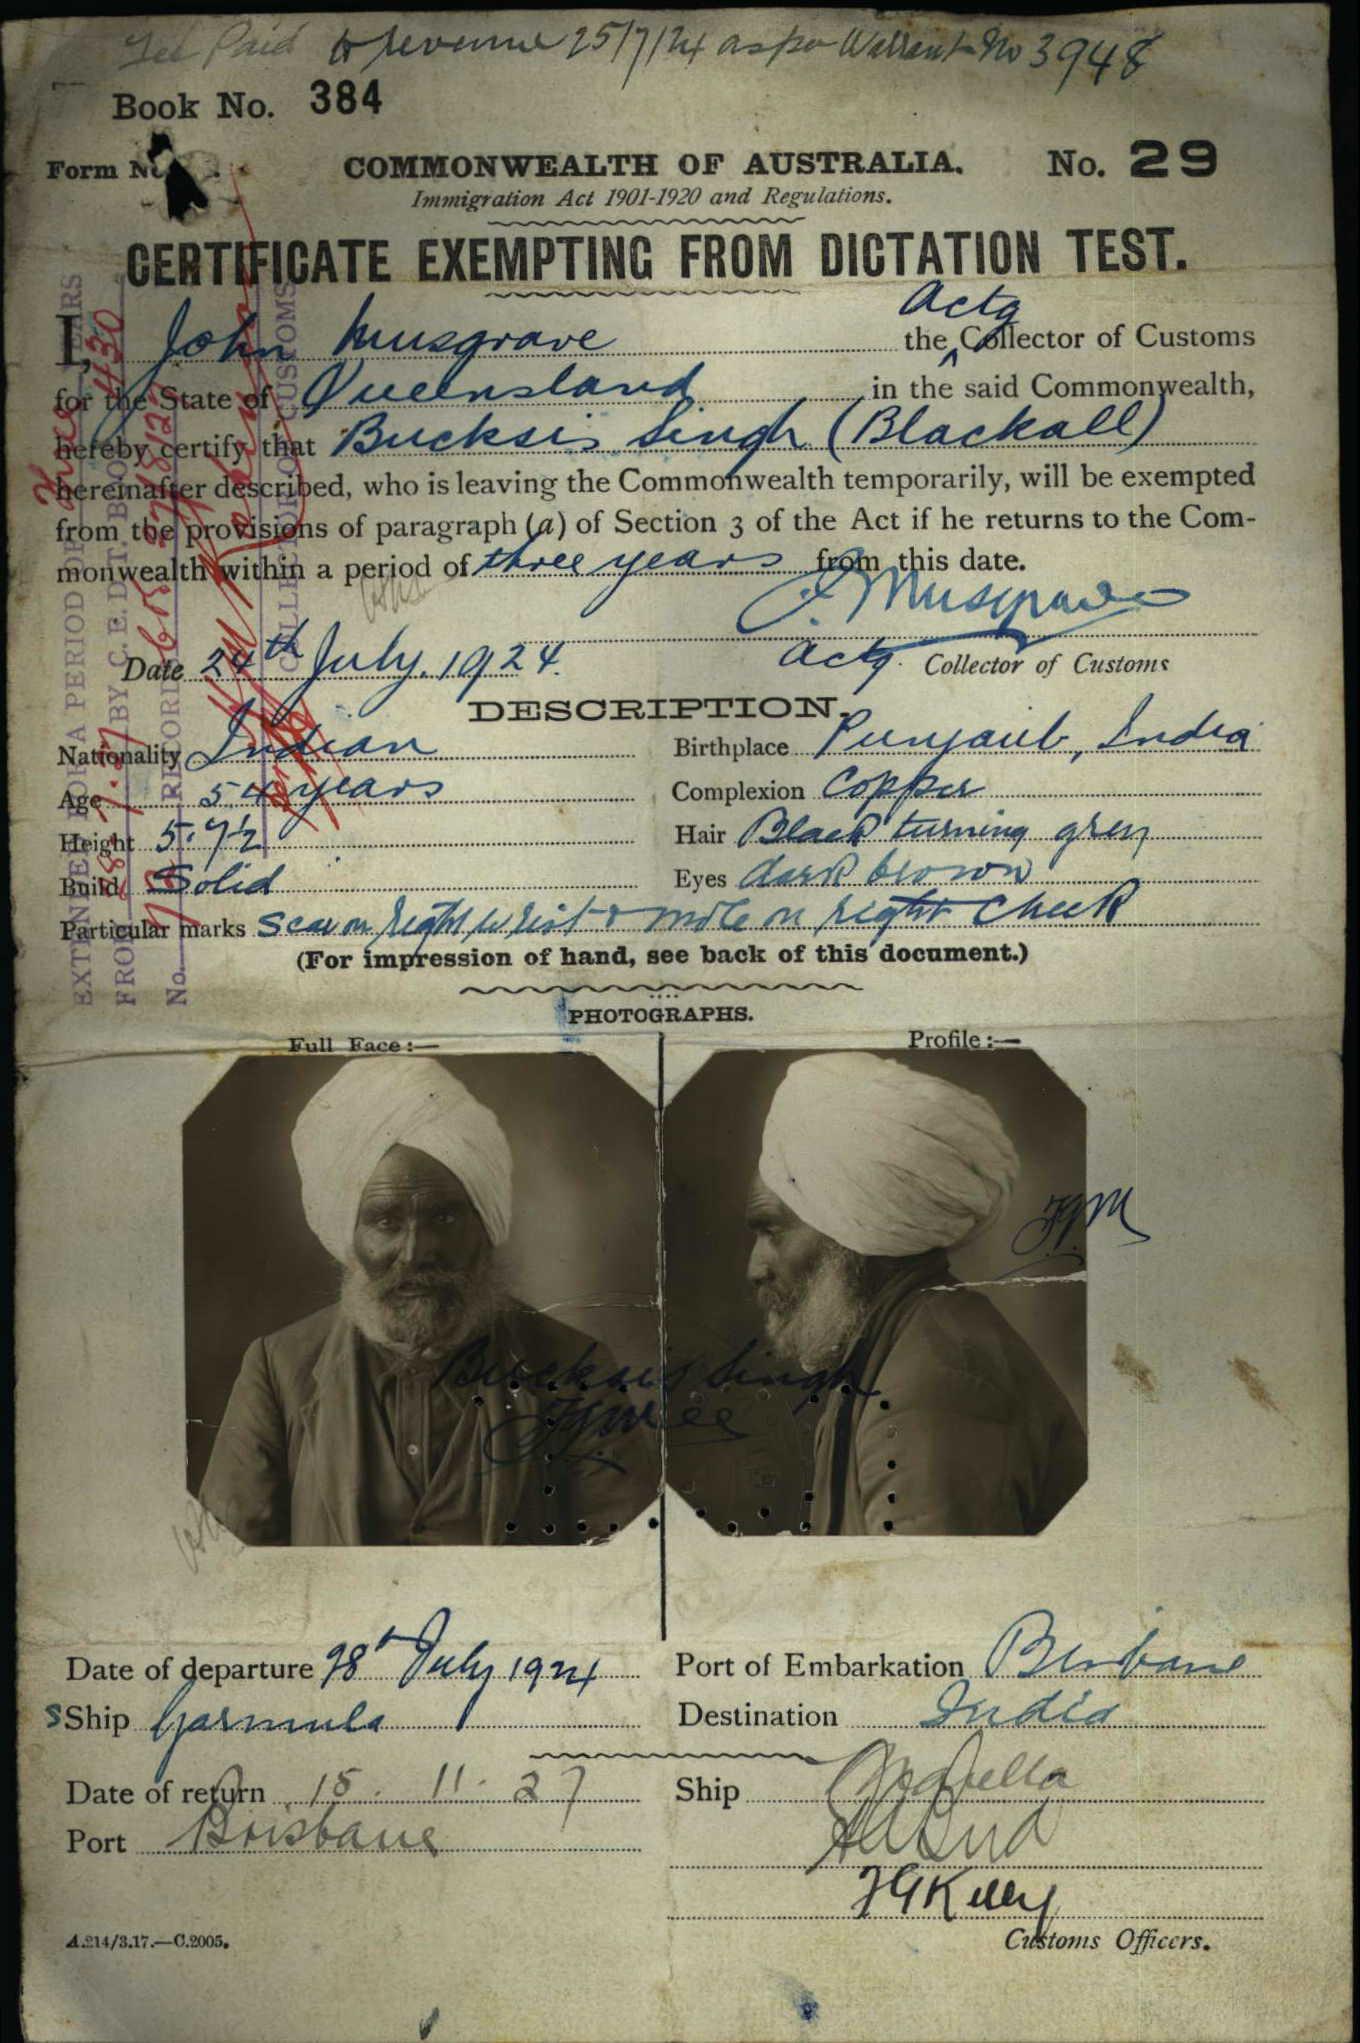 Fee Paid to revenue 25/7/24 as per Warrant No 3948
Book No. 384
Form No.
COMMONWEALTH OF AUSTRALIA. No. 29
Immigration Act 1901-1920 and Regulations.
CERTIFICATE EXEMPTING FROM DICTATION TEST.
I, John Musgrave the Actg Collector of Customs
for the State of Queensland in the said Commonwealth,
hereby certify that Bucksis Singh (Blackall)
hereinafter described, who is leaving the Commonwealth temporarily, will be exempted
from the provisions of paragraph (a) of Section 3 of the Act if he returns to the Com-
monwealth within a period of three years from this date.
J. Musgrave
Date 24th July. 1924. Actg. Collector of Customs
DESCRIPTION.
Nationality Indian Birthplace Punjaub, India
Age 54 years Complexion Copper
Height 5.7½ Hair Black turning grey
Build Solid Eyes dark brown
Particular marks Scar on right wrist & mole on right cheek
(For impression of hand, see back of this document.)
PHOTOGRAPHS.
Full Face:— Profile:—
Bucksis Singh
Date of departure 28th July 1924 Port of Embarkation Brisbane
SShip Garmula Destination India
Date of return 15. 11. 27 Ship
Port Brisbane
FGKelly
A.214/3.17.—C.2005. Customs Officers.
EXTENDED FOR A PERIOD OF three YEARS
FROM 28.7.27 BY C.E.DT. BOOK 430
No. RECORD
COLLECTOR OF CUSTOMS